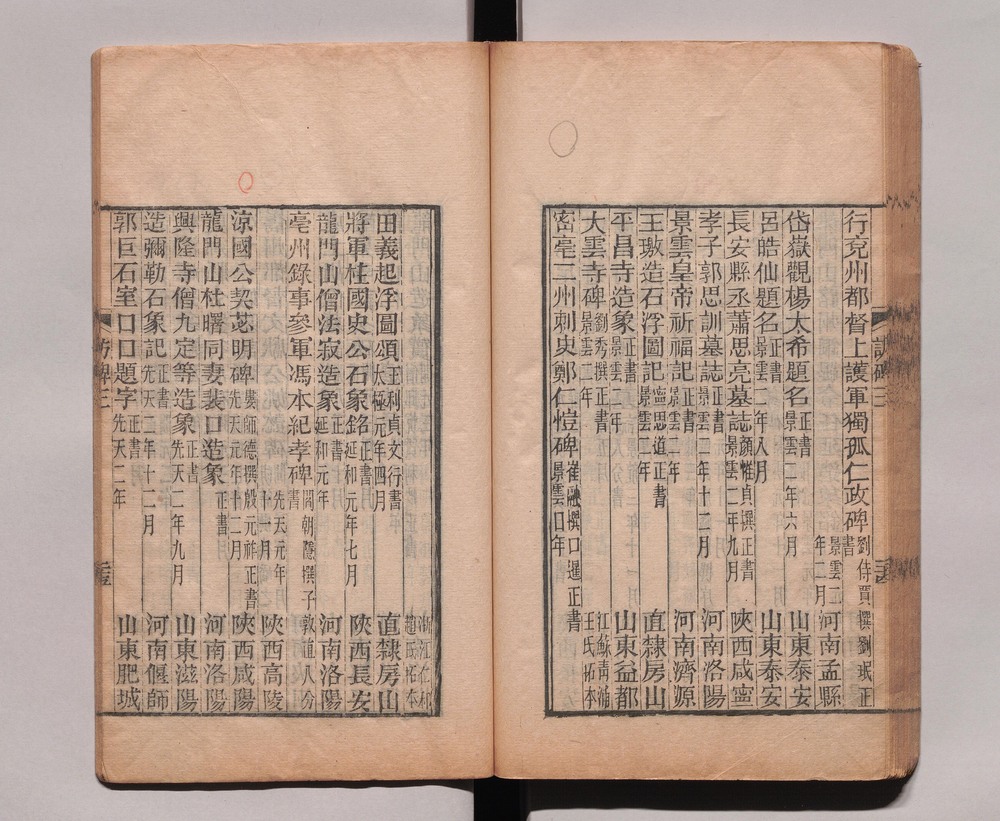 行兗州都督上護軍獨孤仁政碑劉待賈撰劉珉正
書景雲二年二月河南孟縣
岱嶽觀楊太希題名正書景雲二年六月山東泰安
呂皓仙題名正書景雲二年八月山東泰安
長安縣丞蕭思亮墓誌顏惟貞撰正書景雲二年九月陝西咸寧
孝子郭思訓墓誌正書景雲二年十二月河南洛陽
景雲皇帝祈福記正書景雲二年河南濟源
王璬造石浮圖記甯思道正書景雲二年直隸房山
平昌寺造象正書景雲二年山東益都
大雲寺碑劉秀撰正書景雲二年江蘇青浦王氏拓本
密亳二州刺史鄭仁愷碑崔融撰口暹正書景雲口年
浙江仁和趙氏拓本
田義起浮圖頌王利貞文行書太極元年四月直隸房山
將軍柱國史公石象銘正書延和元年七月陝西長安
龍門山僧法寂造象正書延和元年河南洛陽
亳州錄事參軍馮本紀孝碑閻朝隱撰子敦直八分
書先天元年十一月陝西高陵
涼國公契苾明碑婁師德撰殷元祚正書先天元年十二月陝西咸陽
龍門山杜曙同妻裴口造象正書先天二年月河南洛陽
興隆寺僧九定等造象正書先天二年九月山東滋陽
造彌勒石象記正書先天二年十二月河南偃師
郭巨石室口口題字正書先天二年山東肥城
訪碑三